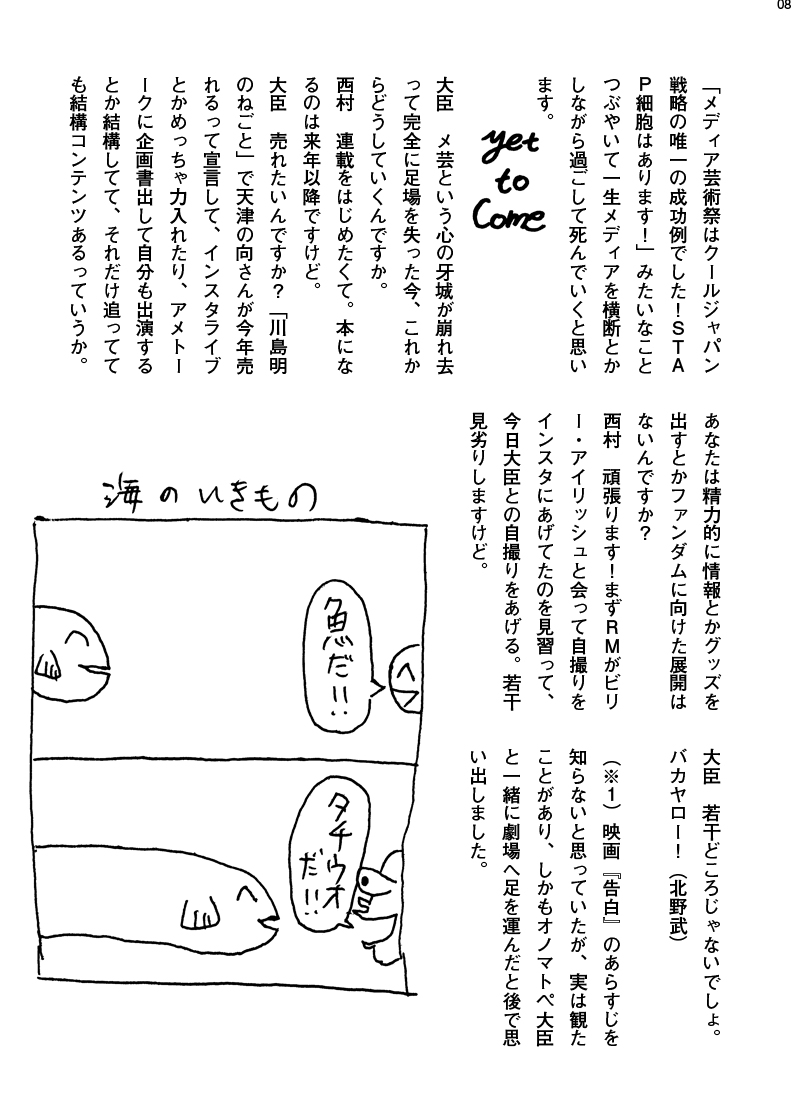 08
「メディア芸術祭はクールジャパン
戦略の唯一の成功例でした！ＳＴＡ
Ｐ細胞はあります！」みたいなこと
つぶやいて一生メディアを横断とか
しながら過ごして死んでいくと思い
ます。
yet
to
Come
大臣　メ芸という心の牙城が崩れ去
って完全に足場を失った今、これか
らどうしていくんですか。
西村　連載をはじめたくて。本にな
るのは来年以降ですけど。
大臣　売れたいんですか？「川島明
のねごと」で天津の向さんが今年売
れるって宣言して、インスタライブ
とかめっちゃ力入れたり、アメトー
ークに企画書出して自分も出演する
とか結構してて、それだけ追ってて
も結構コンテンツあるっていうか。
あなたは精力的に情報とかグッズを
出すとかファンダムに向けた展開は
ないんですか？
西村　頑張ります！まずＲＭがビリ
ー・アイリッシュと会って自撮りを
インスタにあげてたのを見習って、
今日大臣との自撮りをあげる。若干
見劣りしますけど。
大臣　若干どころじゃないでしょ。
バカヤロー！（北野武）
（※１）映画『告白』のあらすじを
知らないと思っていたが、実は観た
ことがあり、しかもオノマトペ大臣
と一緒に劇場へ足を運んだと後で思
い出しました。
海のいきもの
魚だ!!
タチウオ
だ!!